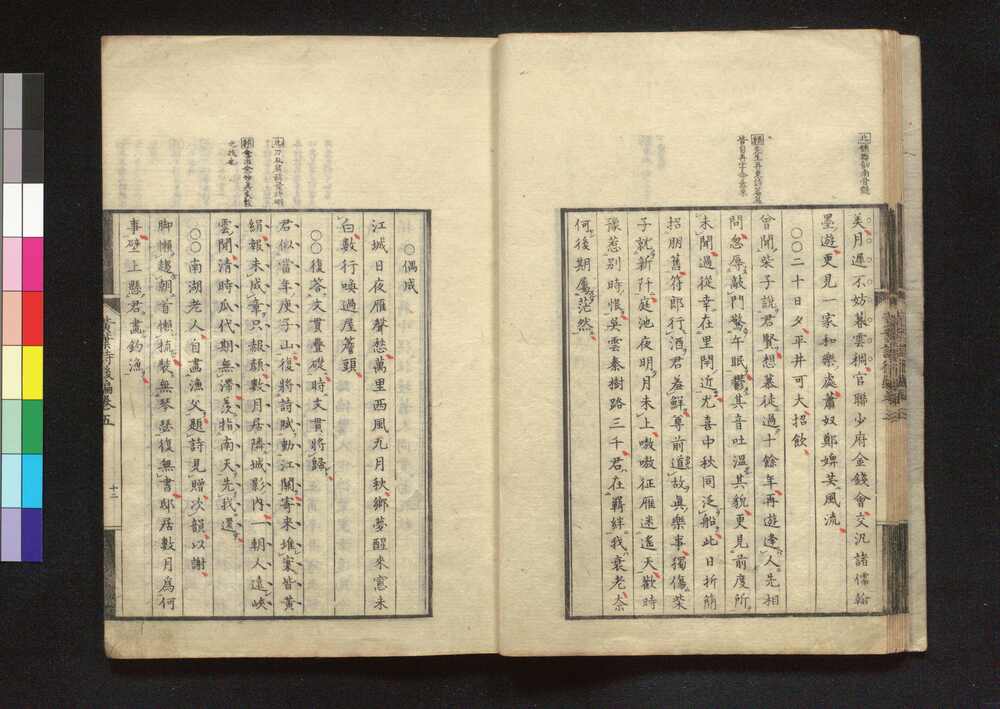 美月遲不妨暮雲稠官聯少府金錢會交汎諸儒翰
墨遊更見一家和樂處蕭奴鄭婢共風流
○○二十日夕平井可大招飲
曾聞柴子說君賢想慕徒過十餘年再遊逢人先相
問忽辱敲門驚午眠鬱其音吐溫其貌更見前度所
未聞過從幸在里閈近尤喜中秋同泛船此日折簡
招朋舊符郎行酒君羞鮮尊前道故眞樂事獨傷柴
子就新阡庭池夜明月未上嗷嗷征雁迷遙天歡時
豫惹別時悵吳雲秦樹路三千君在羇絆我衰老奈
何後期屬茫然
○偶成
江城日夜雁聲愁萬里西風九月秋鄉夢醒來窓未
白數行啼過屋簷頭
○○復荅文貫疊礎時文貫將歸
君似當年庾子山復將詩賦動江關寄來堆案皆黃
絹報未成章只赧顏數月居隣城影內一朝人遠峽
雲間清時瓜代期無滯羨指南天先我還
○○南湖老人自畫漁父題詩見贈次韻以謝
脚懶趨朝首懶梳裝無琴瑟復無書邸居數月爲何
事壁上懸君畫釣漁
黃葉夕陽
詩後編卷五
十二